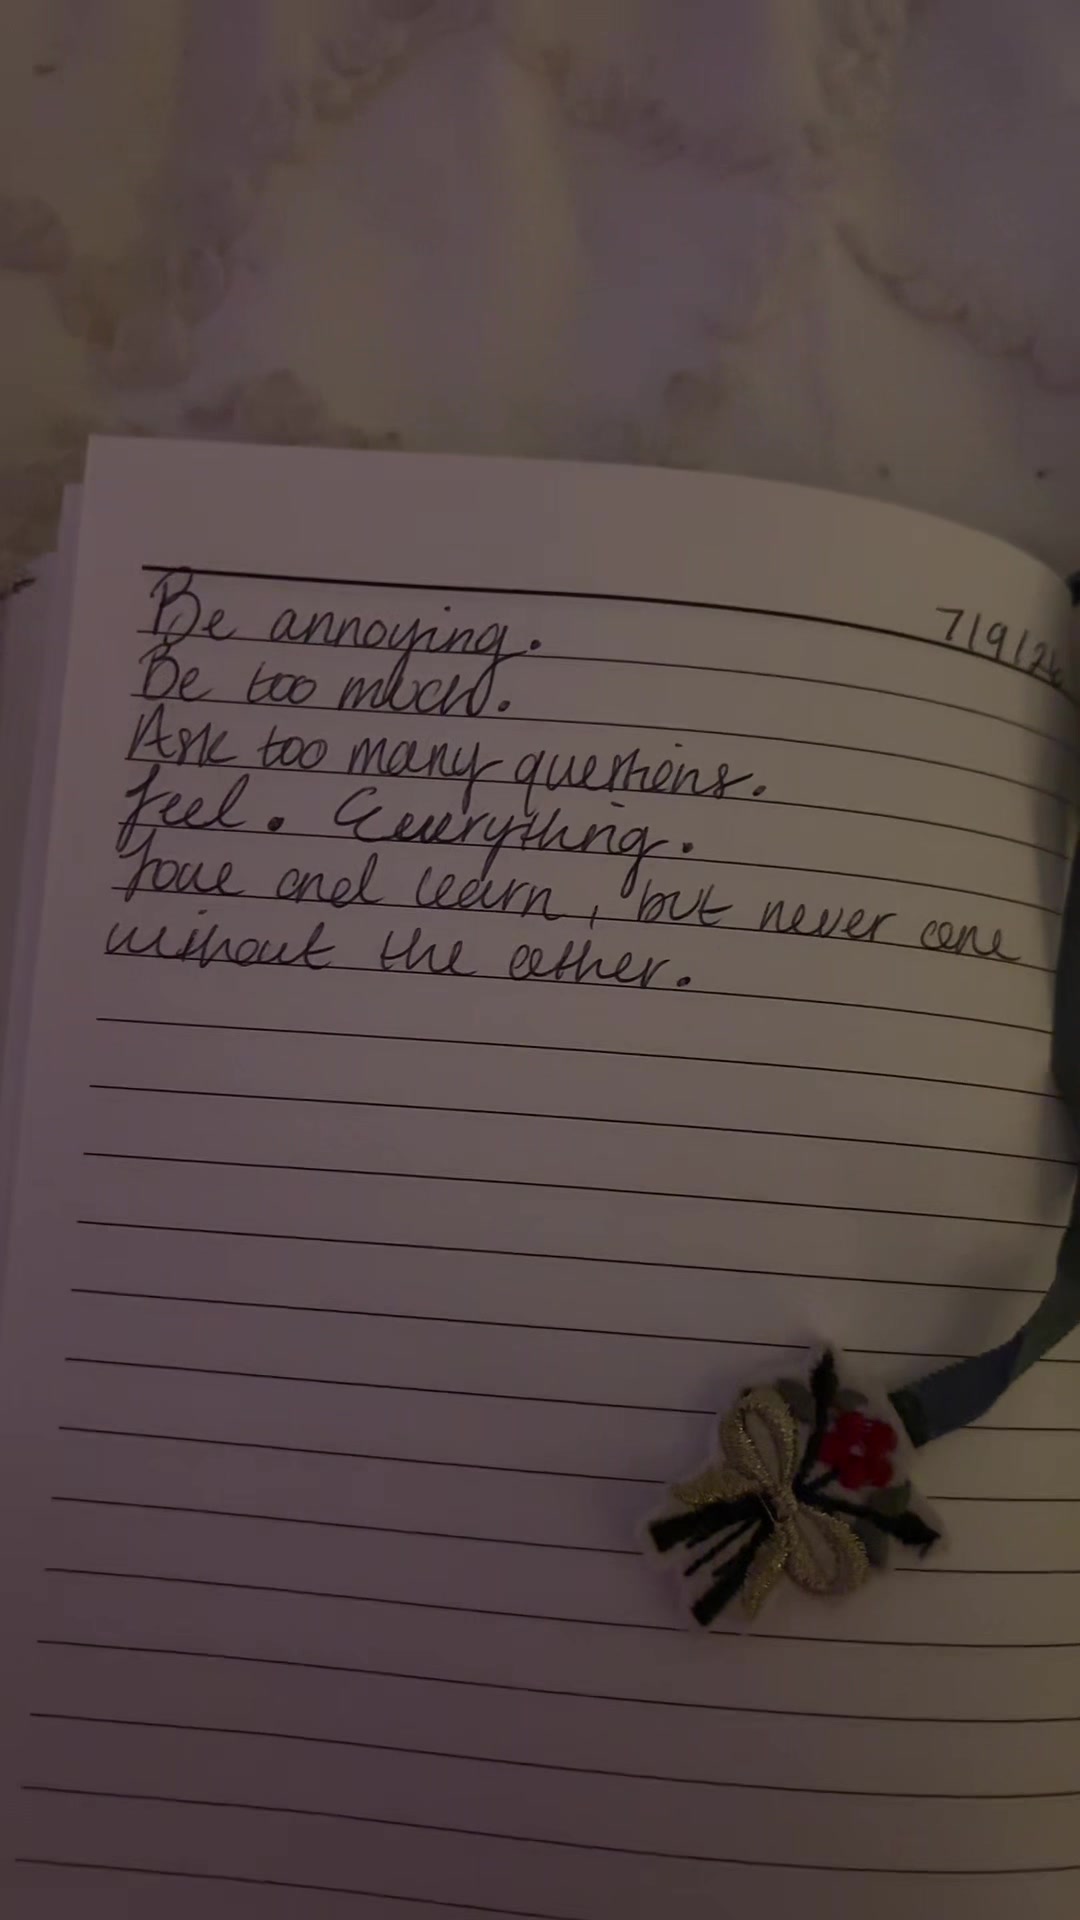 7/9/26
Be annoying.
Be too much.
Ask too many questions.
Feel. Everything.
Love and learn, but never one
without the other.